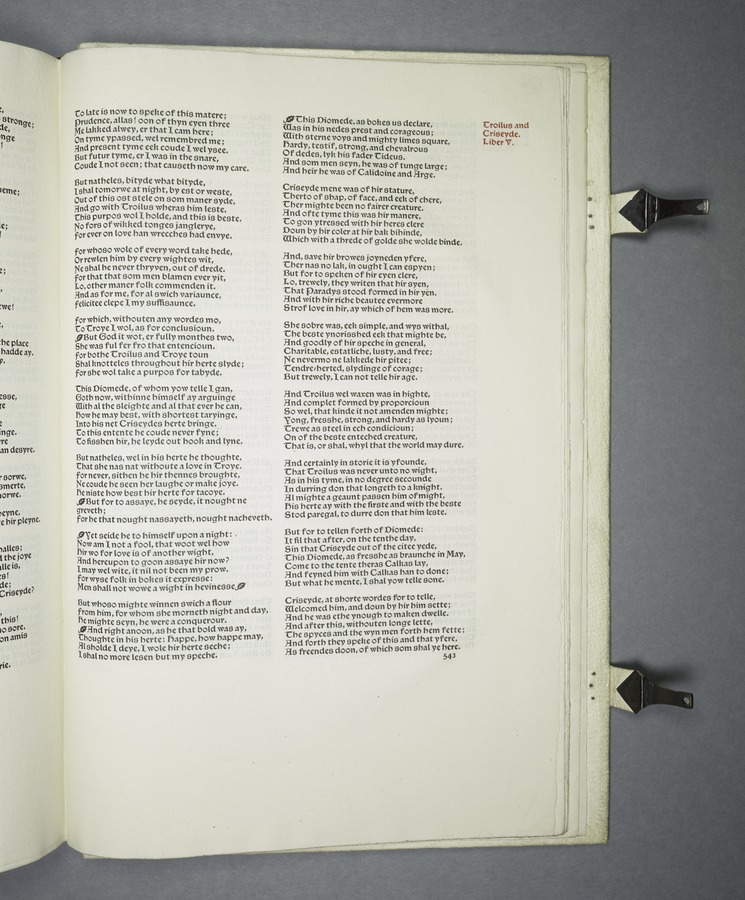 stronge;
de,
nge
!
weme;
e;
!
e;
we!
the place
hadde ay.
y.
esse,
e
inge.
re
an desyre.
r sorwe,
smerte,
orwe.
eyne,
e hir pleyne.
halles;
d the joye
alle is,
s!
de;
Criseyde?
this!
o sore.
on amis
rie.
To late is now to speke of this matere;
Prudence, allas! oon of thyn eyen three
Me lakked alwey, er that I cam here;
On tyme ypassed, wel remembred me;
And present tyme eek coude I wel ysee.
But futur tyme, er I was in the snare,
Coude I not seen; that causeth now my care.
But natheles, bityde what bityde,
I shal tomorwe at night, by est or weste,
Out of this ost stele on som maner syde,
And go with Troilus wheras him leste.
This purpos wol I holde, and this is beste.
No fors of wikked tonges janglerye,
For ever on love han wrecches had envye.
For whoso wole of every word take hede,
Or rewlen him by every wightes wit,
Ne shal he never thryven, out of drede.
For that that som men blamen ever yit,
Lo, other maner folk commenden it.
And as for me, for al swich variaunce,
Felicitee clepe I my suffisaunce.
For which, withouten any wordes mo,
To Troye I wol, as for conclusioun.
But God it wot, er fully monthes two,
She was ful fer fro that entencioun.
For bothe Troilus and Troye toun
Shal knotteles throughout hir herte slyde;
For she wol take a purpos for tabyde.
This Diomede, of whom yow telle I gan,
Goth now, withinne himself ay arguinge
With al the sleighte and al that ever he can,
How he may best, with shortest taryinge,
Into his net Criseydes herte bringe.
To this entente he coude never fyne;
To fisshen hir, he leyde out hook and lyne.
But natheles, wel in his herte he thoughte,
That she nas nat withoute a love in Troye.
For never, sithen he hir thennes broughte,
Ne coude he seen her laughe or make joye.
He niste how best hir herte for tacoye.
But for to assaye, he seyde, it nought ne
greveth;
For he that nought nassayeth, nought nacheveth.
Yet seide he to himself upon a night:
Now am I not a fool, that woot wel how
Hir wo for love is of another wight,
And hereupon to goon assaye hir now?
I may wel wite, it nil not been my prow.
For wyse folk in bokes it expresse:
Men shall not wowe a wight in hevinesse.
But whoso mighte winnen swich a flour
From him, for whom she morneth night and day,
He mighte seyn, he were a conquerour.
And right anoon, as he that bold was ay,
Thoughte in his herte: Happe, how happe may,
Al sholde I deye, I wole hir herte seche;
I shal no more lesen but my speche.
This Diomede, as bokes us declare,
Was in his nedes prest and corageous;
With sterne voys and mighty limes square,
Hardy, testif, strong, and chevalrous
Of dedes, lyk his fader Tideus.
And som men seyn, he was of tunge large;
And heir he was of Calidoine and Arge.
Criseyde mene was of hir stature,
Therto of shap, of face, and eek of chere,
Ther mighte been no fairer creature.
And ofte tyme this was hir manere,
To gon ytressed with hir heres clere
Doun by hir coler at hir bak bihinde,
Which with a threde of golde she wolde binde.
And, save hir browes joyneden yfere,
Ther nas no lak, in ought I can espyen;
But for to speken of hir eyen clere,
Lo, trewely, they writen that hir syen,
That Paradys stood formed in hir yën.
And with hir riche beautee evermore
Strof love in hir, ay which of hem was more.
She sobre was, eek simple, and wys withal,
The beste ynorisshed eek that mighte be,
And goodly of hir speche in general,
Charitable, estatliche, lusty, and free;
Ne nevermo ne lakkede hir pitee;
Tendre-herted, slydinge of corage;
But trewely, I can not telle hir age.
And Troilus wel waxen was in highte,
And complet formed by proporcioun
So wel, that kinde it not amenden mighte;
Yong, fresshe, strong, and hardy as lyoun;
Trewe as steel in ech condicioun;
On of the beste enteched creature,
That is, or shal, whyl that the world may dure.
And certainly in storie it is yfounde,
That Troilus was never unto no wight,
As in his tyme, in no degree secounde
In durring don that longeth to a knight.
Al mighte a geaunt passen him of might,
His herte ay with the firste and with the beste
Stod paregal, to durre don that him leste.
But for to tellen forth of Diomede:
It fil that after, on the tenthe day,
Sin that Criseyde out of the citee yede,
This Diomede, as fresshe as braunche in May,
Come to the tente theras Calkas lay,
And feyned him with Calkas han to done;
But what he mente, I shal yow telle sone.
Criseyde, at shorte wordes for to telle,
Welcomed him, and doun by hir him sette;
And he was ethe ynough to maken dwelle.
And after this, withouten longe lette,
The spyces and the wyn men forth hem fette;
And forth they speke of this and that yfere,
As freendes doon, of which som shal ye here.
543
Troilus and
Criseyde.
Liber V.